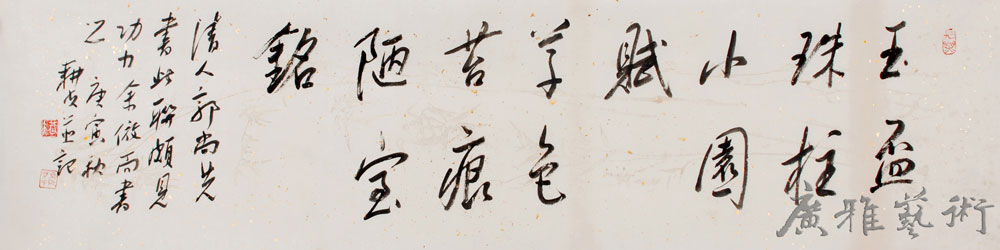 玉盃
珠柱
小園
賦
草色
苔痕
陋室
銘
清人郭尚先
書此聯頗見
功力余倣而書
之庚寅秋
耕並記
廣雅藝術